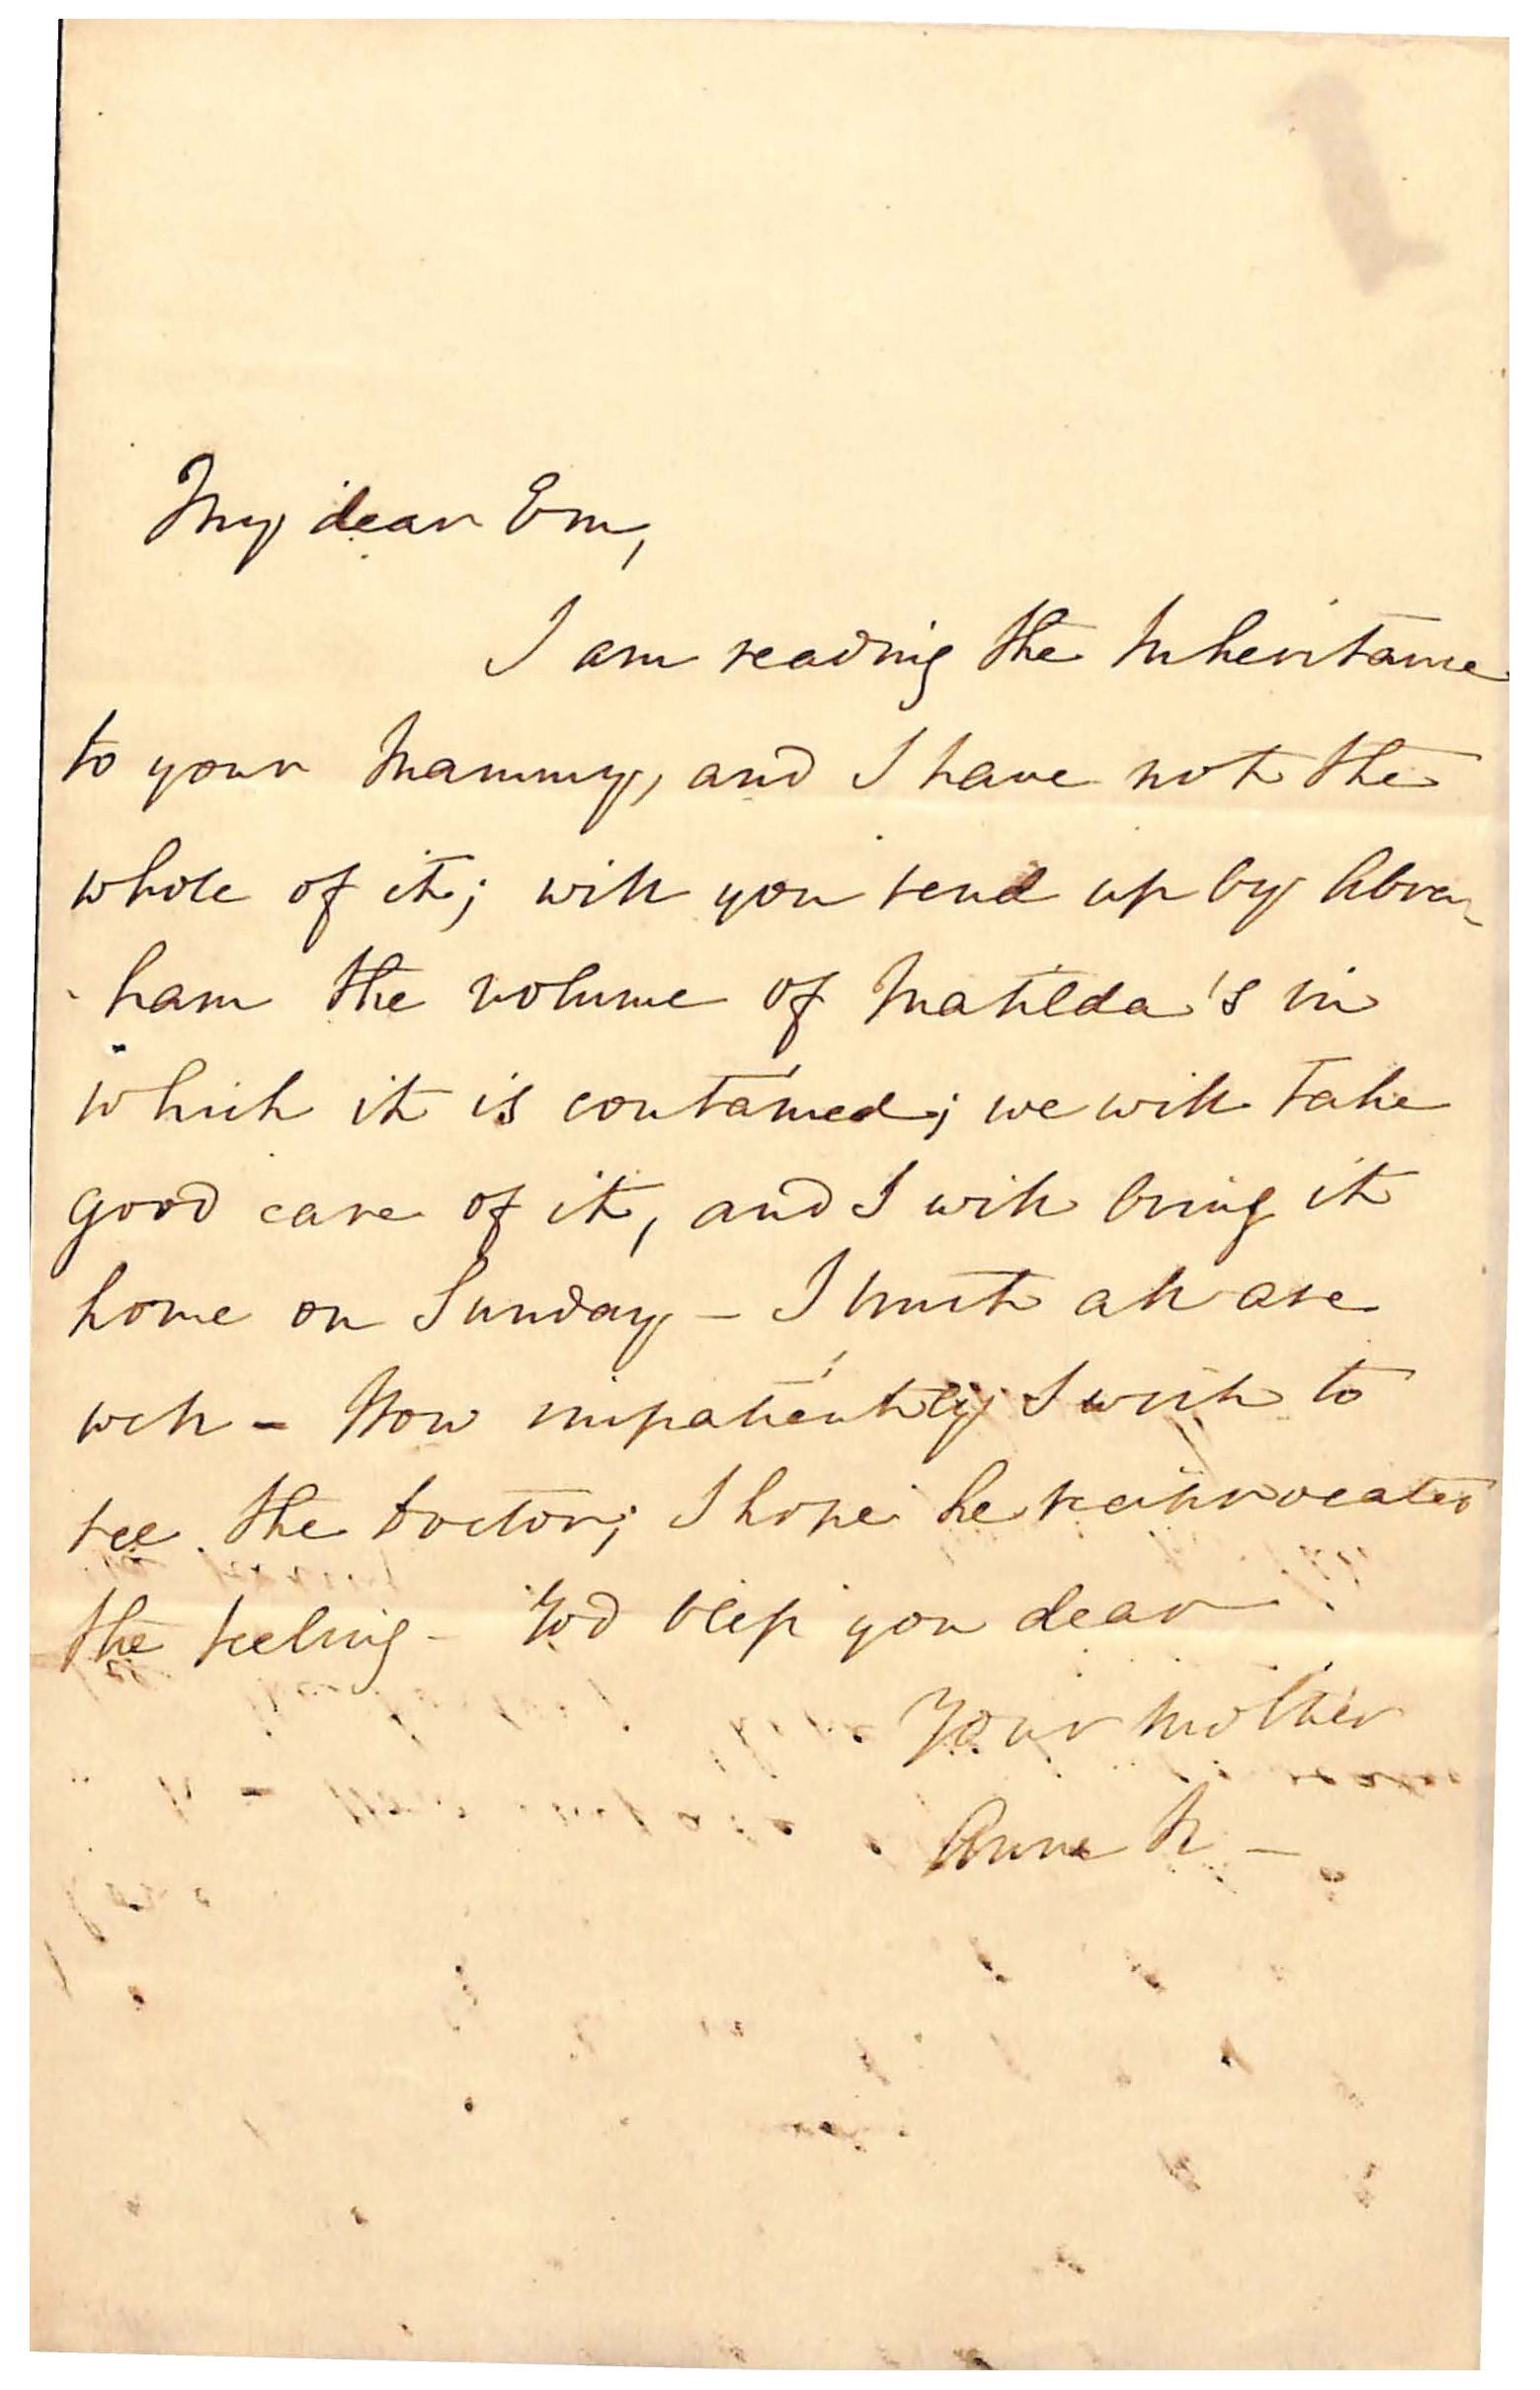 My dear Em,
I am reading the Inheritance
to your Mammy, and I have not the
whole of it; will you send up by Abra-
-ham the volume of Matilda's in
which it is contained; we will take
good care of it, and I will bring it
home on Sunday - I trust all are
well - How impatiently I wish to
see the doctor; I hope he reciprocates
the feeling - God bless you dear
Your mother
Anne R -